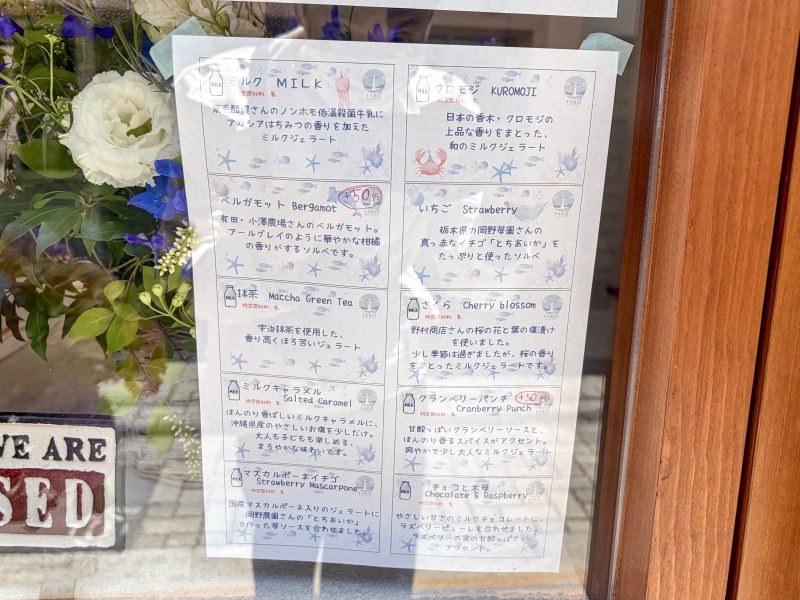 ミルク MILK
特定原材料 乳
アカシアはちみつの香りを加えた
ミルクジェラート
クロモジ KUROMOJI
特定原材料 乳
日本の香木・クロモジの
上品な香りをまとった、
和のミルクジェラート
ベルガモット Bergamot
+50円
有田・小澤農場さんのベルガモット。
アールグレイのように華やかな柑橘
の香りがするソルベです。
いちご Strawberry
栃木県の岡野苺園さんの
真っ赤なイチゴ「とちあいか」を
たっぷりと使ったソルベ
抹茶 Maccha Green Tea
特定原材料 乳
宇治抹茶を使用した、
香り高くほろ苦いジェラート
さくら Cherry blossom
特定原材料 乳
野村商店さんの桜の花と葉の塩漬け
を使いました。
少し季節は過ぎましたが、桜の香り
をまとったミルクジェラートです。
ミルクキャラメル
特定原材料 乳
Salted Caramel
ほんのり香ばしいミルクキャラメルに、
沖縄県産のやさしいお塩を少しだけ。
大人も子どもも楽しめる、
まろやかな味わいです。
クランベリーパンチ
+50円
特定原材料 乳
Cranberry Punch
甘酸っぱいクランベリーソースと、
ほんのり香るスパイスがアクセント。
爽やかで少し大人なミルクジェラート
マスカルポーネイチゴ
特定原材料 乳
Strawberry Mascarpone
国産マスカルポーネ入りのジェラートに
岡野農園さんの「とちあいか」
で作った苺ソースを合わせました。
チョコと木苺
特定原材料 乳
Chocolate & Raspberry
やさしい甘さのミルクチョコレートに、
ラズベリーピューレを合わせました。
ラズベリーの実の甘酸っぱさが
アクセント。
WE ARE
SED